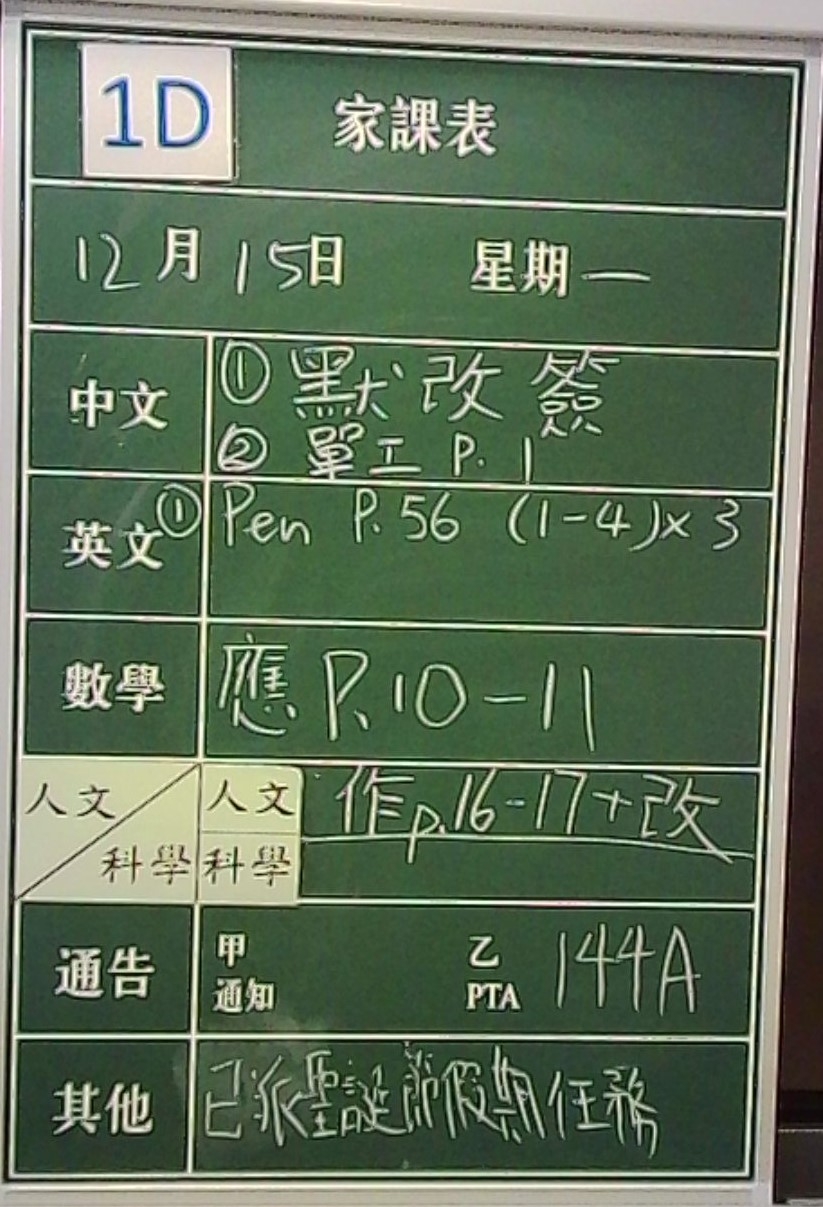 1D 家課表
12月15日 星期一
中文 ① 默改簽
② 單工 P. 1
英文 ① Pen P. 56 (1-4)x3
數學 應 P. 10-11
人文 人文 作p.16-17+改
科學 科學
通告 甲 乙 144A
通知 PTA
其他 已派聖誕節假期任務